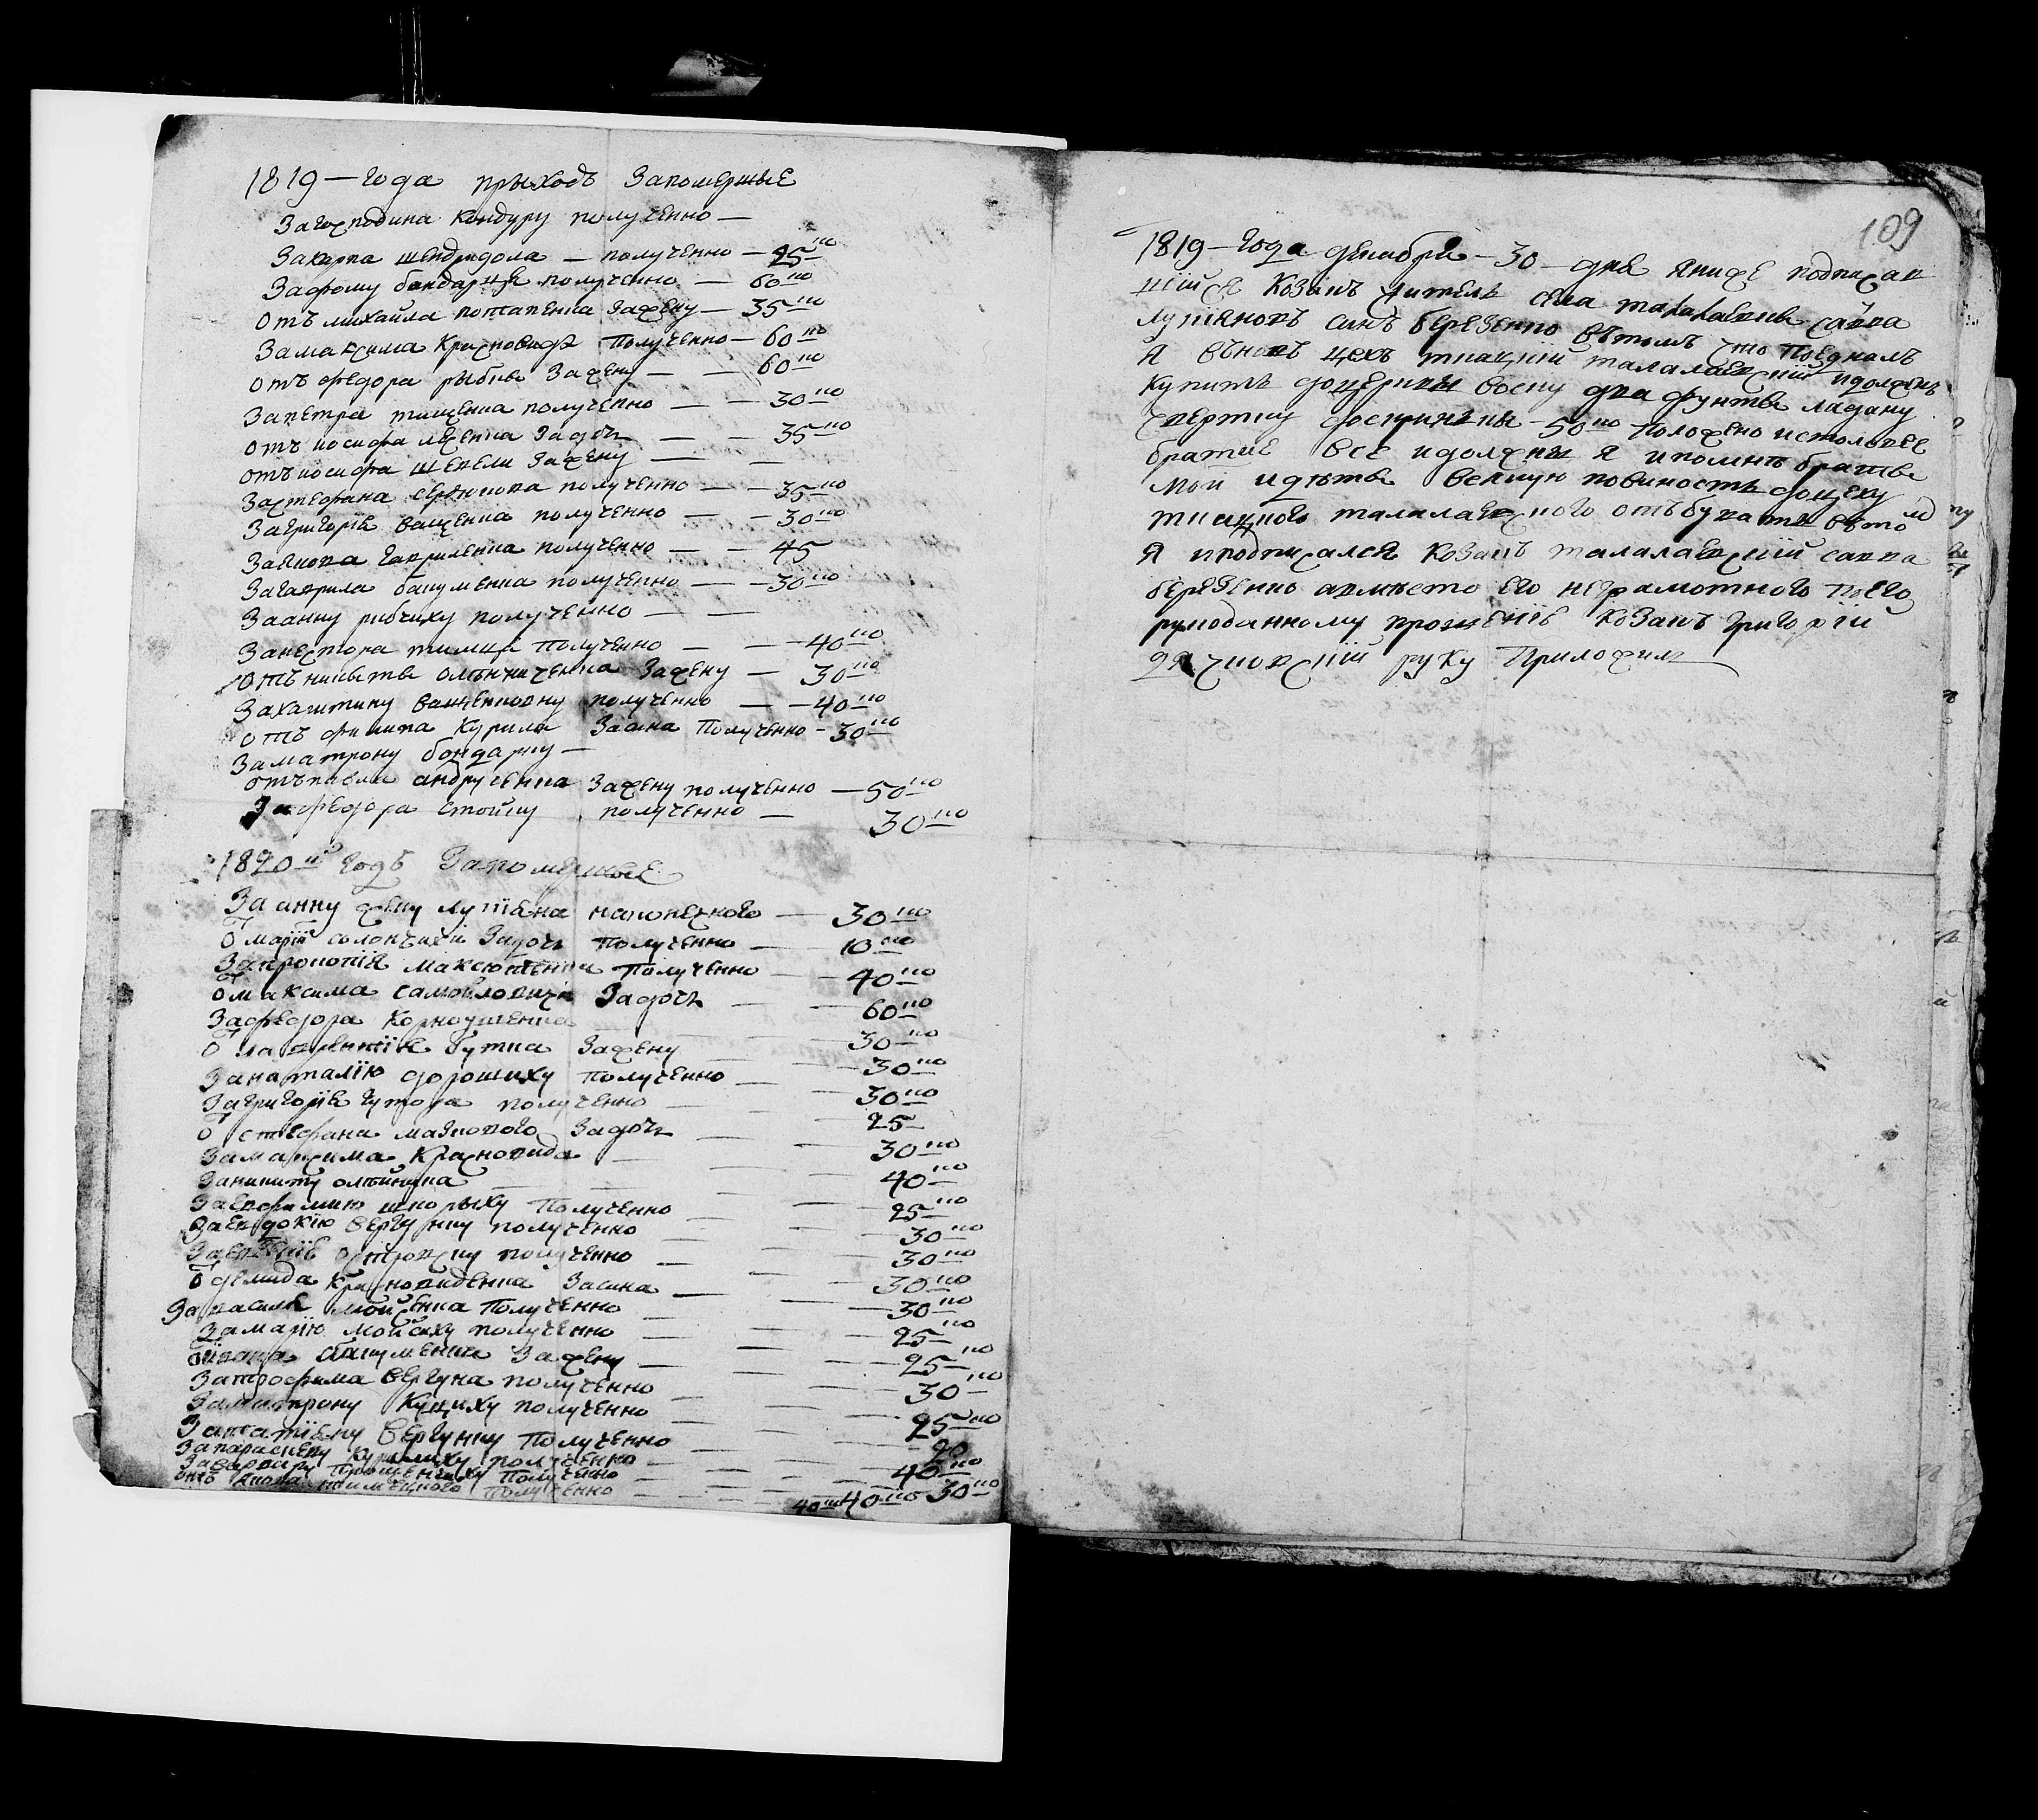 1819 — года прыходъ Запомершые
Загосподина Кондуру полученно —
Закарпа шендридола — полученно — 25 ко
Зафому бондарця полученно — 60 ко
Отъ михайла потапенка Зажену — 35 ко
Замаксима Красновида Полученно — 60 ко
отъ федора рыбки Зажену — — 60 ко
Запетра тищенка полученно — — 30 ко
отъ иосифа лещенка Задочь — — 35 ко
отъ иосифа шепели Зажену — —
Застефана сердюкова полученно — — 35 ко
Загригорія ващенка полученно — — 30 ко
Заякова гавриленка полученно — — 45
Загаврила бакуменка полученно — — 30 ко
Заанну рибчиху полученно — —
Занестора тимца Полученно — — 40 ко
отъ никиты олѣйниченка Зажену — 30 ко
Захаритину ващенковну полученно — — 40 ко
отъ филипа Курила Засина Полученно — 30 ко
Заматрону бондарку —
отъ павла андрусенка Зажену полученно — 50 ко
Зафедора стойку полученно — 30 ко
1820 й годъ Запомершые
За анну жену лукіяна наконечного — 30 ко
От маріи солонъихи Задочь Полученно — 10 ко
Запрокопія максютенка Полученно — 40 ко
От максима самойловича Задочь — 60 ко
Зафедора Корноушенка — 30 ко
От лаврентія бутка Зажену — 30 ко
Занаталію дорошиху Полученно — 30 ко
Загригорія гутора полученно — 25
От стефана мазкового Задочь — 30 ко
Замаксима Красновида — 40 ко
Заникиту олѣйника — 25 ко
Заевфимию шкорыху Полученно — 30 ко
Заевдокію вергунку полученно — 30 ко
островску полученно — 30 ко
От демида Красновиденка Засина — 30 ко
Завасиля мойсенка Полученно — 25 ко
Замарію мойсиху полученно — 25 ко
От бакуменка Зажену — 30 ко
Затрофима вергуна полученно — 25 ко
Заматрону Куциху полученно — 20
Зататіяну вергунку Полученно — 40 ко
Запараскеву Курилиху полученно — 30 ко
Заварвару Прощенчиху Полученно — 40 ко
отъ якова Полученно — 40 ко
109
1819 — года декабря — 30 — дня яниже подписав
шійся Козакъ житель села талалаевки савка
лукяновъ синъ березенко вътомъ что Поеднавъ
я въновъ цехъ ткацкій талалаевскій идолженъ
купить доцеркви воску два фунта ладану
четвертку доскринки — 50 ко Положено истоловое
братие все идолжни я ипомнѣ братья
мои идѣти всякую повиность доцеху
ткацкого талалаевского отъбувати вътомъ
я иподписался козакъ талалаевскій савка
березенко авмѣсто его неграмотного Поего
рукоданному прошенію козакъ григорій
дячковскій руку Приложилъ